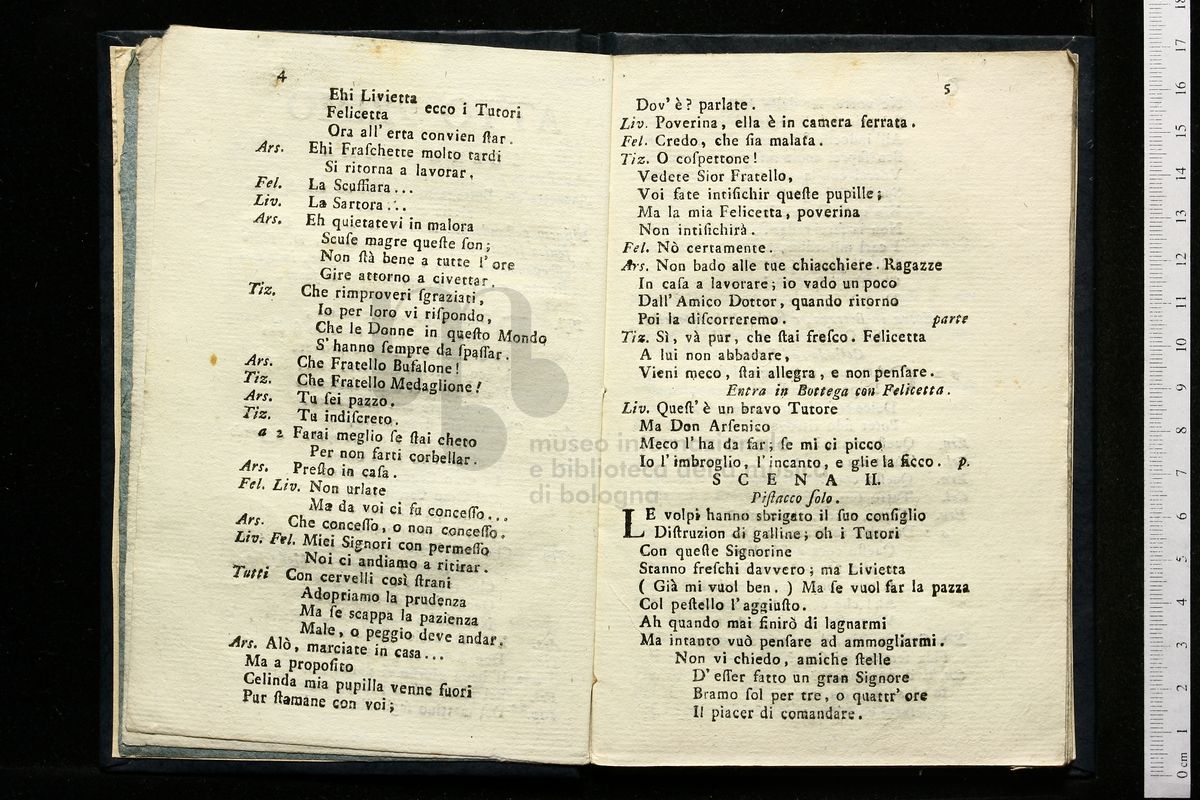 4
Ehi Livietta
Felicetta ecco i Tutori
Ora all' erta convien ſtar.
Ars. Ehi Fraſchette molto tardi
Si ritorna a lavorar,
Fel. La Scuſſiara...
Liv. La Sartora...
Ars. Eh quietatevi in malora
Scuſe magre queſte ſon;
Non ſtà bene a tutte l' ore
Gire attorno a civettar.
Tiz. Che rimproveri ſgraziati,
Io per loro vi riſpondo,
Che le Donne in queſto Mondo
S' hanno ſempre da ſpaſſar.
Ars. Che Fratello Bufalone!
Tiz. Che Fratello Medaglione!
Ars. Tu ſei pazzo.
Tiz. Tu indiſcreto.
a 2 Farai meglio ſe ſtai cheto
Per non farti corbellar.
Ars. Preſto in caſa.
Fel. Liv. Non urlate
Ma da voi ci fu conceſſo...
Ars. Che conceſſo, o non conceſſo.
Liv. Fel. Miei Signori con permeſſo
Noi ci andiamo a ritirar.
Tutti Con cervelli così ſtrani
Adopriamo la prudenza
Ma ſe scappa la pazienza
Male, o peggio deve andar.
Ars. Alò, marciate in casa...
Ma a propoſito
Celinda mia pupilla venne fuori
Pur ſtamane con voi;
5
Dov' è? parlate.
Liv. Poverina, ella è in camera ſerrata.
Fel. Credo, che ſia malata.
Tiz. O coſpettone!
Vedete Sior Fratello,
Voi fate intiſichir queſte pupille;
Ma la mia Felicetta, poverina
Non intiſichirà.
Fel. Nò certamente.
Ars. Non bado alle tue chiacchiere. Ragazze
In caſa a lavorare; io vado un poco
Dall' Amico Dottor, quando ritorno
Poi la diſcorreremo. parte
Tiz. Sì, và pur, che ſtai freſco. Felicetta
A lui non abbadare,
Vieni meco, ſtai allegra, e non penſare.
Entra in Bottega con Felicetta.
Liv. Queſt' è un bravo Tutore
Ma Don Arſenico
Meco l' ha da far; ſe mi ci picco
Io l' imbroglio, l' incanto, e glie la ficco. p.
SCENA II.
Piſtacco ſolo.
LE volpi hanno sbrigato il ſuo conſiglio
Diſtruzion di galline; oh i Tutori
Con queſte Signorine
Stanno freſchi davvero; ma Livietta
( Già mi vuol ben. ) Ma ſe vuol far la pazza
Col peſtello l' aggiuſto.
Ah quando mai finirò di lagnarmi
Ma intanto vuò penſare ad ammogliarmi.
Non vi chiedo, amiche ſtelle
D' eſſer fatto un gran Signore
Bramo ſol per tre, o quattr' ore
Il piacer di comandare.
museo internazionale
e biblioteca della musica
di bologna
0 cm 1 2 3 4 5 6 7 8 9 10 11 12 13 14 15 16 17 18